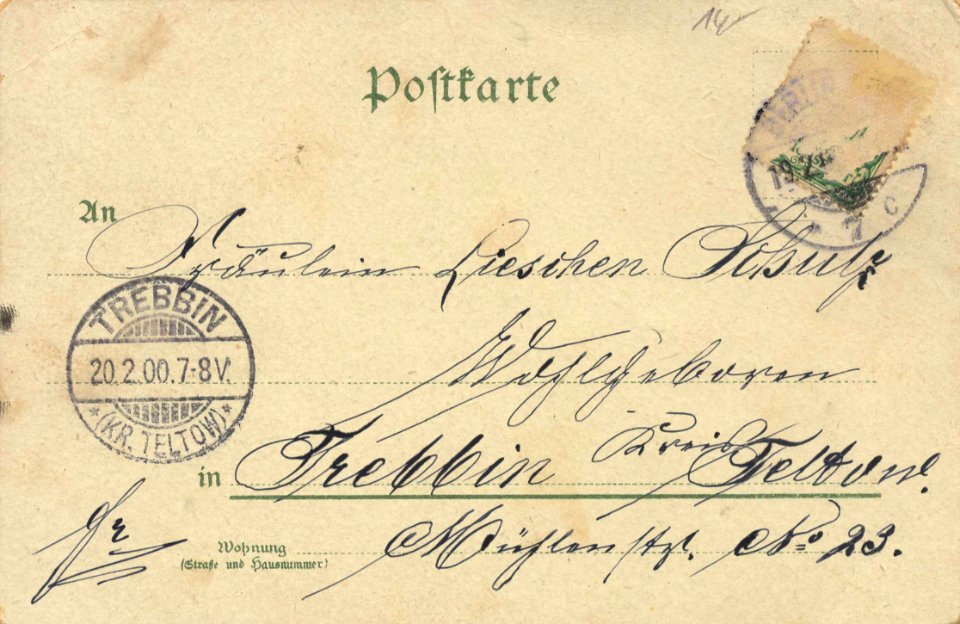 14
Postkarte
19.2.
7 C
An Fräulein Lieschen Schulz
TREBBIN
20.2.00.7-8V.
(KR. TELTOW)
Wohlgeboren
in Trebbin Kreis Teltow.
Wohnung
(Straße und Hausnummer)
Mühlenstr. No 23.